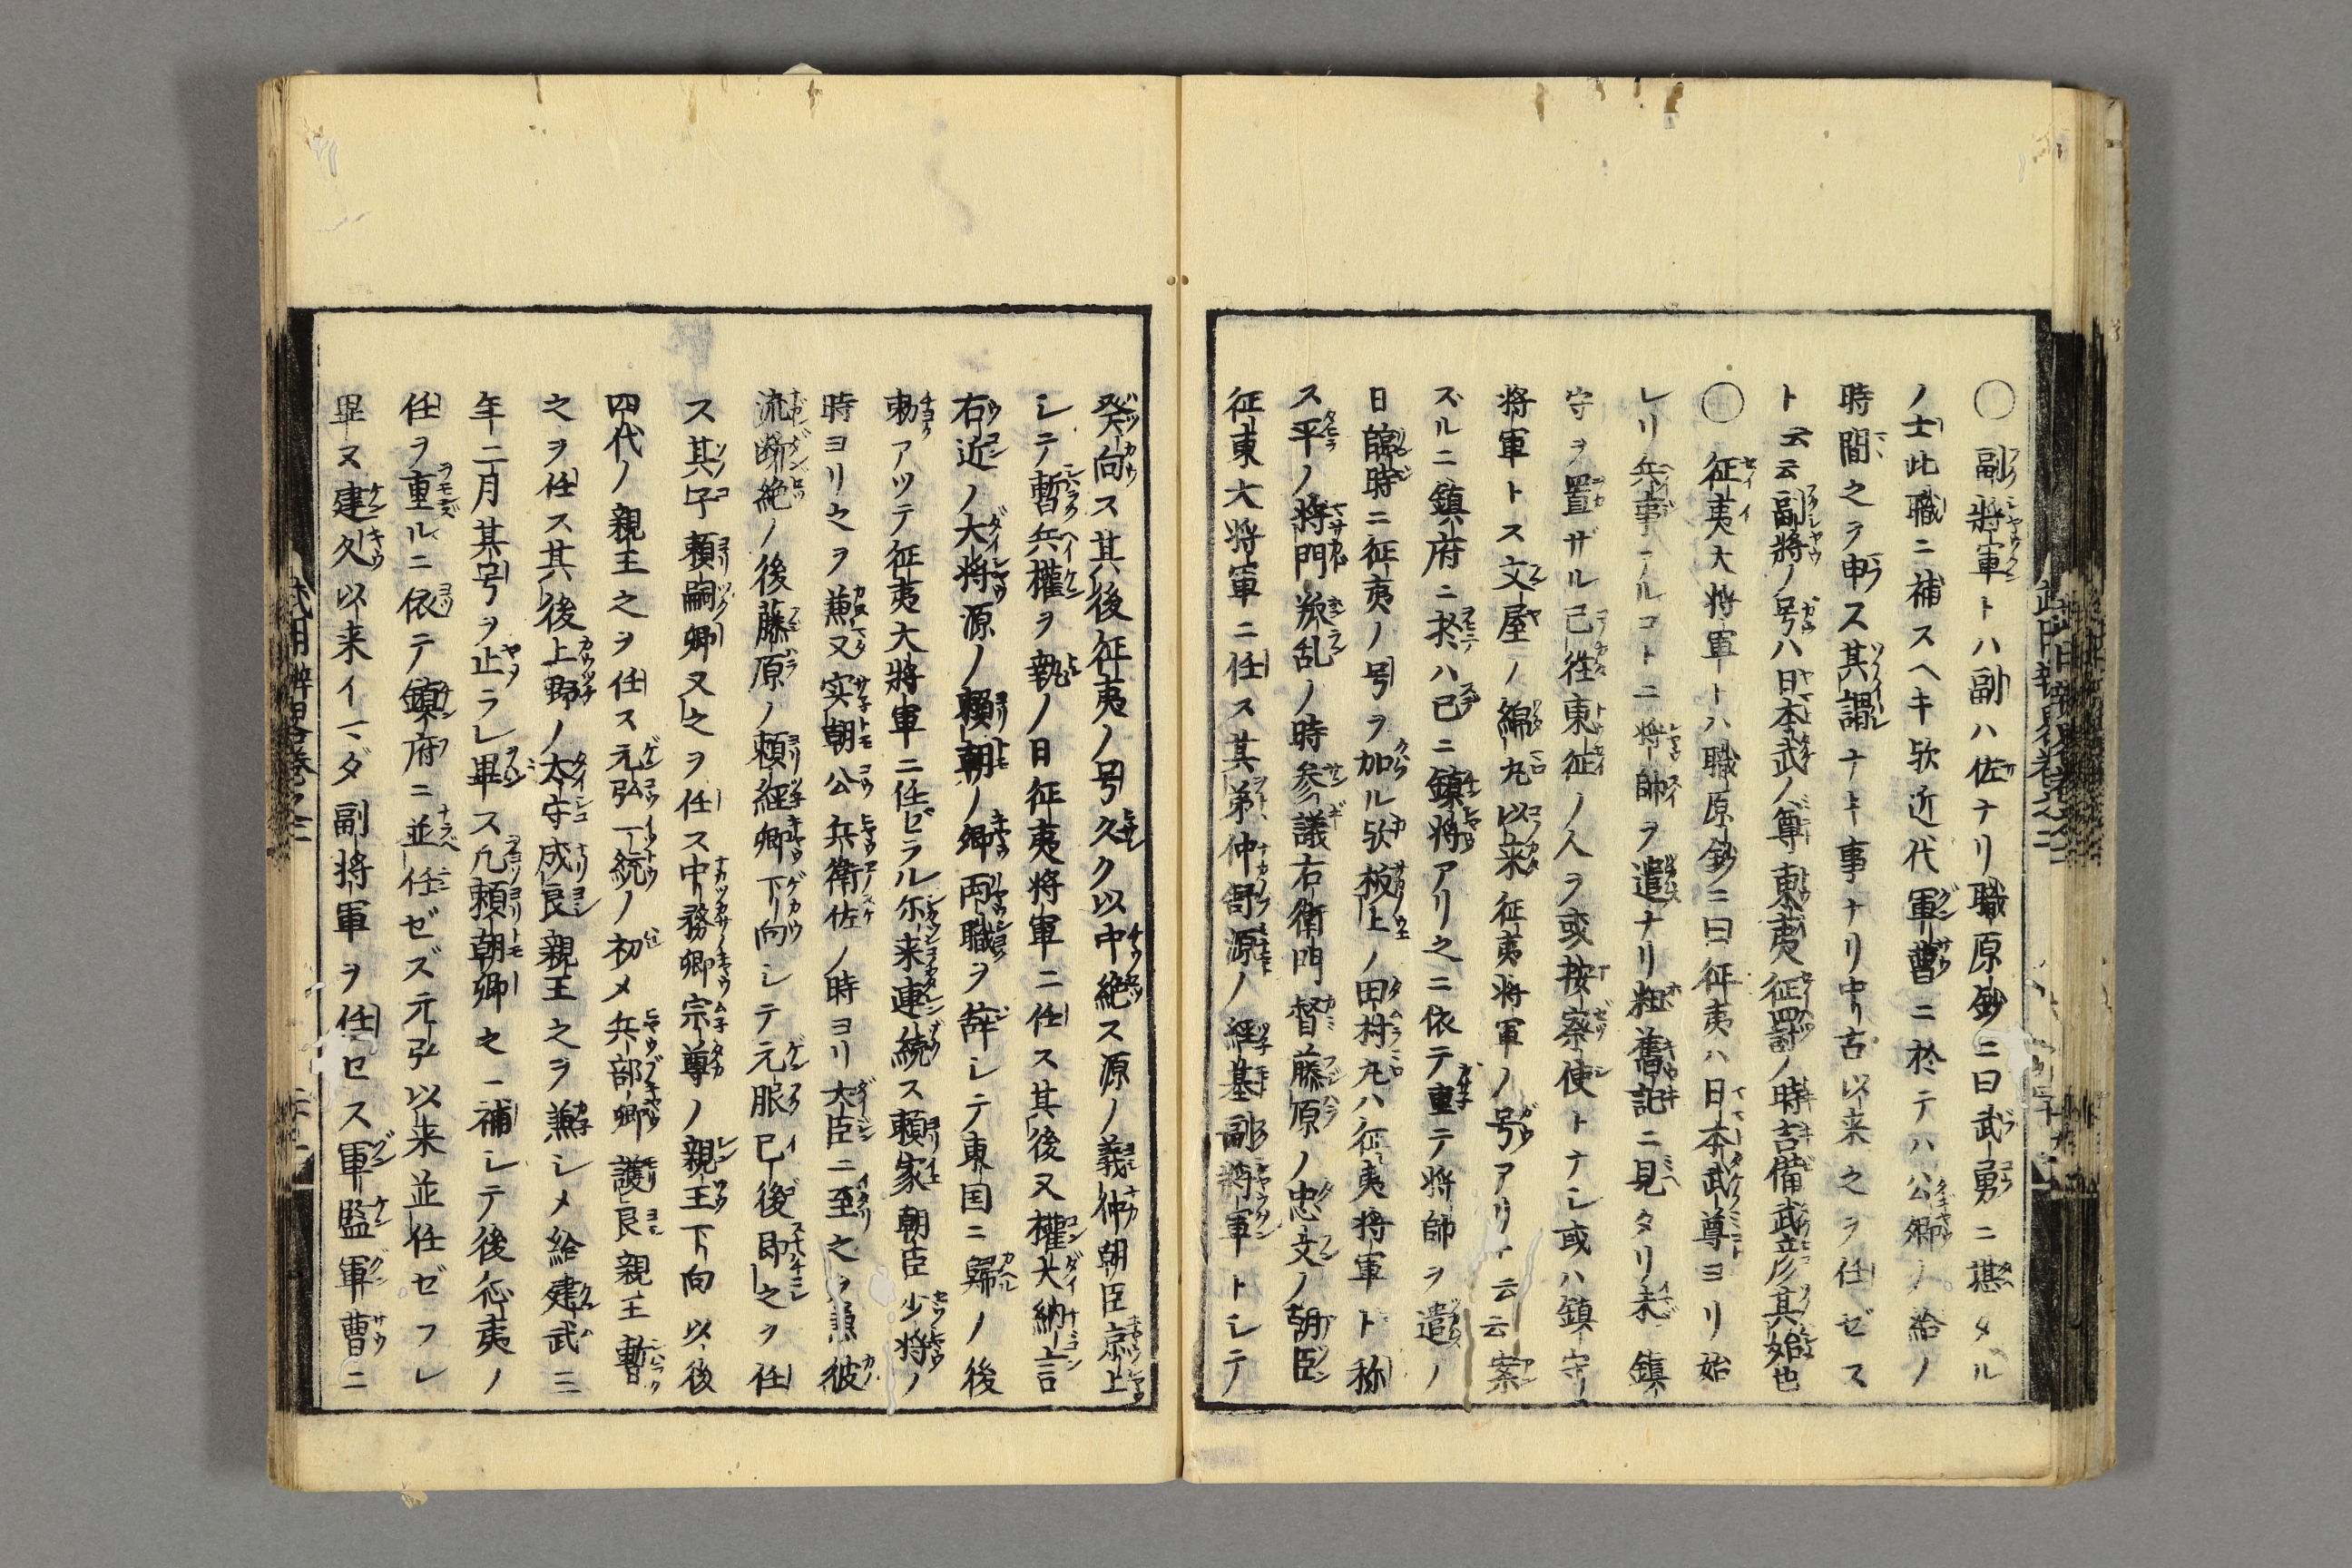 〇副將軍トハ副ハ佐ナリ職原鈔ニ曰武勇ニ堪タル
ノ士此職ニ補スヘキ欤近代軍曹ニ於テハ公卿ノ給ノ
時間之ヲ申ス其謂ナキ事ナリ中古以来之ヲ任ゼス
ト云云副將ノ号ハ日本武ノ尊東夷征罸ノ時吉備武彦其始也
〇征夷大将軍トハ職原鈔ニ曰征夷ハ日本武尊ヨリ始
レリ兵事アルコトニ将帥ヲ遣ナリ粗舊記ニ見タリ未鎮
守ヲ置ザル已往東征ノ人ヲ或按察使トナシ或ハ鎮守
将軍トス文屋ノ綿丸以来征夷将軍ノ号アリト云云案
ズルニ鎮府ニ於ハ已ニ鎮将アリ之ニ依テ重テ将帥ヲ遣ノ
日臨時ニ征夷ノ号ヲ加ル欤板上ノ田村丸ハ征夷将軍ト称
ス平ノ将門叛乱ノ時参議右衛門督藤原ノ忠文ノ朝臣
征東大将軍ニ任ス其弟仲舒源ノ経基副将軍トシテ
癸向ス其後征夷ノ号久ク以中絶ス源ノ義仲朝臣京上
シテ暫兵權ヲ執ノ日征夷将軍ニ任ス其後又權大納言
右近ノ大将源ノ頼朝ノ卿両職ヲ辞シテ東国ニ歸ノ後
勅アツテ征夷大將軍ニ任ゼラル尓来連続ス頼家朝臣少将ノ
時ヨリ之ヲ兼又実朝公兵衛佐ノ時ヨリ大臣ニ至之ヲ兼彼
流断絶ノ後藤原ノ頼経卿下向シテ元服已後即之ヲ任
ス其子頼嗣卿又之ヲ任ス中務卿宗尊ノ親王下向以後
四代ノ親王之ヲ任ス元弘一統ノ初メ兵部卿護良親王暫
之ヲ任ス其後上野ノ太守成良親王之ヲ兼シメ給建武三
年二月其号ヲ止ラレ畢ス凢頼朝卿之ニ補シテ後征夷ノ
任ヲ重ルニ依テ鎮府ニ並任ゼズ元弘以来並任ゼフレ
畢ヌ建久以来イマダ副将軍ヲ任セス軍監軍曹ニ